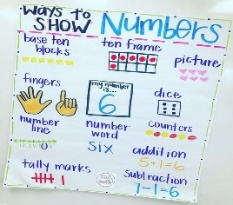 Ways to
SHOW Numbers
base ten
blocks
ten frame
picture
fingers
my number
is...
6
dice
number
line
number
word
SIX
counters
addition
5+1=6
tally marks
subtraction
7-1=6